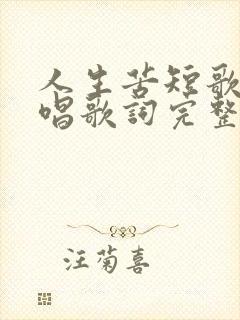 人生苦短歌
唱歌詞完整
汪菊喜